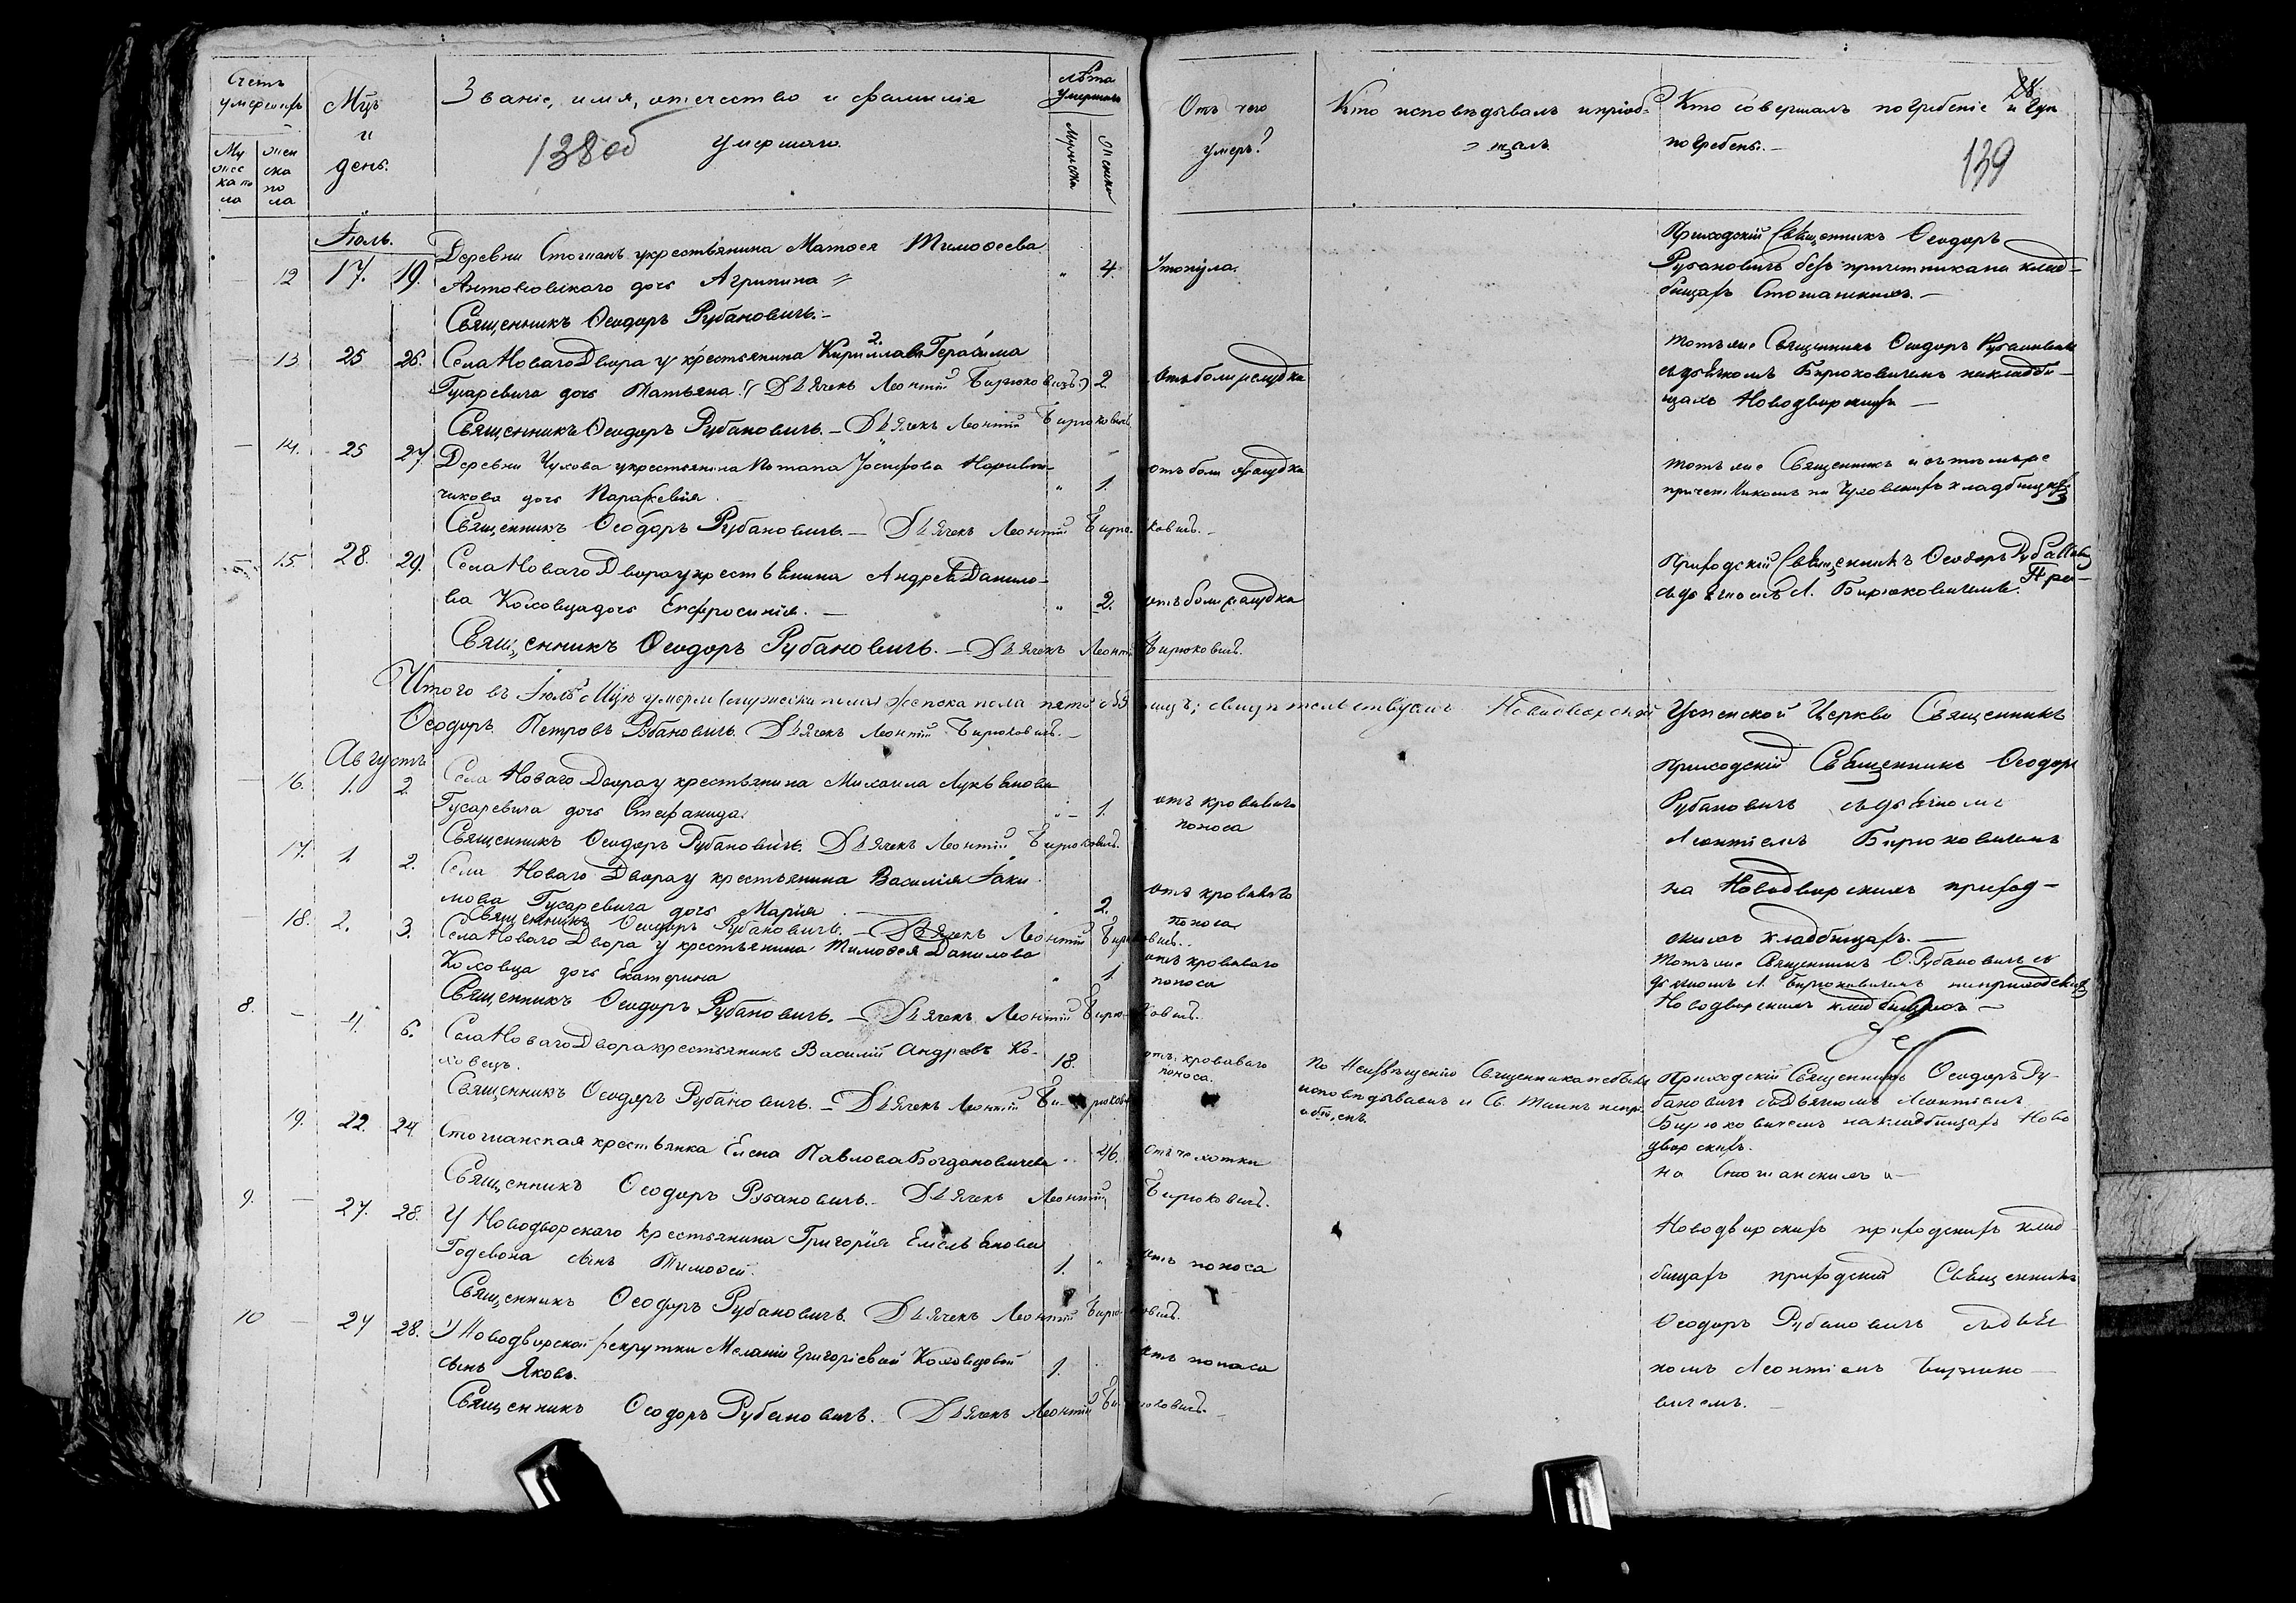 Счетъ умершихъ
Мужеска пола
Женска пола
Мцъ и день.
Званіе, имя, отечество и фамилія умершаго.
138об
Лѣта умершаго
Мужеска
Женска
Отъ чего умеръ?
Кто исповѣдывалъ и пріобщалъ.
Кто совершалъ погребеніе и гдѣ погребены.
28
139
Іюль.
12 17. 19. Деревни Стошанъ у крестьянина Матөея Тимоөеева
дочь Агрипина 4. Утонула.
Священникъ Өеодоръ Рубановичъ.
Приходскій Священникъ Өеодоръ
Рубановичъ безъ причетника на клад-
бищахъ Стошанскихъ.
13 25 26. Села Новаго Двора у крестьянина Кирилла Герасима
Гусаревича дочь Татьяна (Дьячекъ Леонтій Бирюковичъ) 2. отъ боли желудка
Священникъ Өеодоръ Рубановичъ. Дьячекъ Леонтій Бирюковичъ.
Тотъ же Священникъ Өеодоръ Рубановичъ
съ дьячкомъ Бирюковичемъ на кладби-
щахъ Новодворскихъ
14. 25 27. Деревни Чухова у крестьянина Потапа Іосифова
дочь Параскевія 1. отъ боли желудка
Священникъ Өеодоръ Рубановичъ. Дьячекъ Леонтій Бирюковичъ.
Тотъ же Священникъ и съ тѣмъ же
причетникомъ на Чуховскихъ кладбищахъ
15. 28. 29. Села Новаго Двора у крестьянина Андрея Данило-
ва Коховца дочь Евфросинія. 2. отъ боли желудка
Священникъ Өеодоръ Рубановичъ. Дьячекъ Леонтій Бирюковичъ.
Приходскій Священникъ Өеодоръ Рубановичъ
съ дьячкомъ Л. Бирюковичемъ.
Итого въ Іюлѣ Мцѣ умерли (мужеска пола) женска пола пять свидѣтельствуемъ Новодворской Успенской Церкви Священникъ
Өеодоръ Петровъ Рубановичъ. Дьячекъ Леонтій Бирюковичъ.
Августъ
16. 1. 2. Села Новаго Двора у крестьянина Михаила Лукьянова
Гусаревича дочь Стефанида. 1. отъ кроваваго поноса
Священникъ Өеодоръ Рубановичъ. Дьячекъ Леонтій Бирюковичъ.
Приходскій Священникъ Өеодоръ
Рубановичъ съ дьячкомъ
Леонтіемъ Бирюковичемъ
на Новодворскихъ приход-
скихъ кладбищахъ.
17. 1. 2. Села Новаго Двора у крестьянина Василія Іаки-
мова Гусаревича дочь Марія 2. отъ кроваваго поноса
Священникъ Өеодоръ Рубановичъ. Дьячекъ Леонтій Бирюковичъ.
18. 2. 3. Села Новаго Двора у крестьянина Тимоөея Данилова
Коховца дочь Екатерина 1. отъ кроваваго поноса
Священникъ Өеодоръ Рубановичъ. Дьячекъ Леонтій Бирюковичъ.
Тотъ же Священникъ Ө. Рубановичъ съ
дьячкомъ Л. Бирюковичемъ на приходскихъ
Новодворскихъ кладбищахъ
8. 4. 6. Села Новаго Двора крестьянинъ Василій Андреевъ Ко-
ховецъ. 18. отъ кроваваго поноса.
Священникъ Өеодоръ Рубановичъ. Дьячекъ Леонтій Бирюковичъ
По неизвѣщенію Священника не былъ
исповѣдыванъ и Св. Таинъ не прі-
общенъ.
Приходскій Священникъ Өеодоръ Ру-
бановичъ съ Дьячкомъ Леонтіемъ
Бирюковичемъ на кладбищахъ Ново
дворскихъ.
19. 22. 24. Стошанская крестьянка Елена Павлова Богдановичева 46. Отъ чахотки
Священникъ Өеодоръ Рубановичъ. Дьячекъ Леонтій Бирюковичъ.
на Стошанскихъ и
9. 27. 28. У Новодворскаго крестьянина Григорія Емельянова
сынъ Тимоөей. 1. отъ поноса
Священникъ Өеодоръ Рубановичъ. Дьячекъ Леонтій Бирюковичъ.
Новодворскихъ приходскихъ клад
бищахъ приходскій Священникъ
Өеодоръ Рубановичъ съ дьяч
комъ Леонтіемъ Бирюко-
вичемъ.
10 27 28. У Новодворской рекрутки Меланіи Григорьевой Коховцовой
сынъ Яковъ. 1. отъ поноса
Священникъ Өеодоръ Рубановичъ. Дьячекъ Леонтій Бирюковичъ.